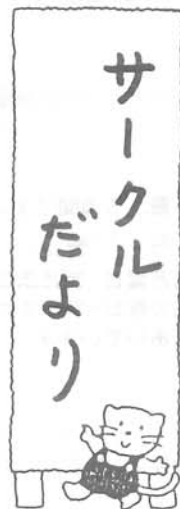 サークル
だより